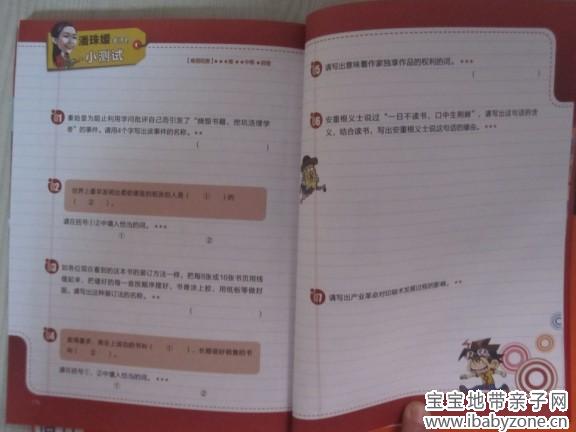 潘珠媛
小测试
01 秦始皇为阻止利用学问批评自己而引发了“烧毁书籍、挖坑活埋学
者”的事件。请用4个字写出该事件的名称。★★
( )
02
世界上最早发明出柔软便宜的纸张的人是( ① )的
( ② )。
请在括号①②中填入恰当的词。★★★
① ②
03 如各位现在看到的这本书的装订方法一样，把每8张或16张书页用线
缝起来，把缝好的每一叠按顺序摆好，书脊涂上胶，用纸板等做封
面。请写出这种装订法的名称。★★
( )
04
( ① )，长期很好销售的书
叫( ② )。
请在括号①、②中填入恰当的词。★★★
① ②
05 请写出意味着作家独享作品的权利的词。★★★
( )
06 安重根义士说过“一日不读书，口中生荆棘”，请写出这句话的含
义，结合读书，写出安重根义士说这句话的缘由。★★★
07 请写出产业革命对印刷术发展过程的影响。★★
宝宝地带亲子网
www.ibabyzone.cn